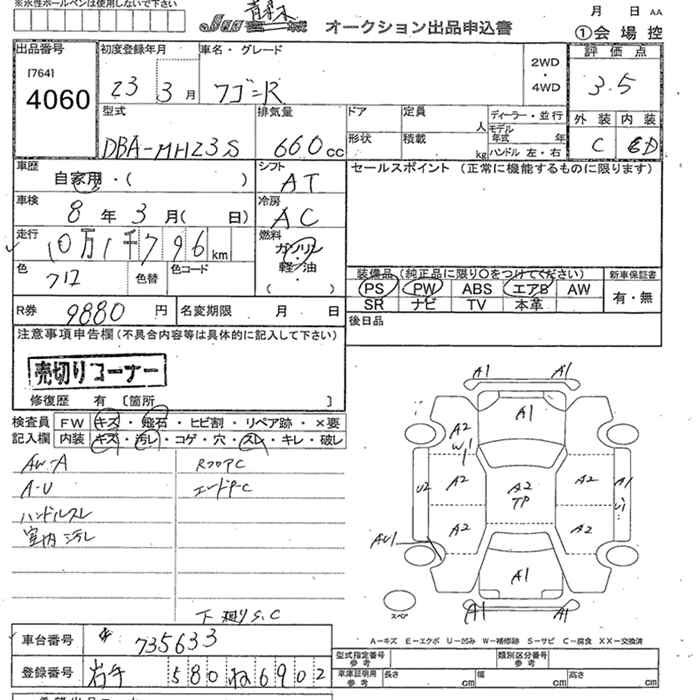 ※水性ボールペンは使用しないで下さい
月 日 AA
オークション出品申込書
①会場控
出品番号
[764]
4060
初度登録年月
23 3月
車名・グレード
ワゴンR
2WD
・
4WD
評価点
3.5
型式
DBA-MH23S
排気量
660cc
ドア
形状
定員
人
積載
kg
ディーラー・並行
モデル年式 年
ハンドル 左・右
外装 内装
C
車歴
自家用・( )
シフト
AT
セールスポイント (正常に機能するものに限ります)
車検
8年3月( 日)
冷房
AC
走行
10万1千796km
燃料
ガソリン
・
軽油
( )
色
クロ
色替
色コード
装備品(純正品に限り〇をつけてください)
PS PW ABS エアB AW
SR ナビ TV 本革
新車保証書
有・無
R券
9880円
名変期限 月 日
後日品
注意事項申告欄(不具合内容等は具体的に記入して下さい)
売切りコーナー
修復歴 有 [箇所 ]
検査員
記入欄
FW キズ・飛石・ヒビ割・リペア跡・×要
内装 キズ・汚レ・コゲ・穴・スレ・キレ・破レ
AW-A
A-U
ハンドルスレ
室内汚レ
RフロアC
エンドP-C
下廻りS.C
A1 A1
A1
A2
W1
U2
A2
A2
TP
A2
A1
A2
A2
AU1
A1
A1 A1
スペア
A-キズ E-エクボ U-凹み W-補修跡 S-サビ C-腐食 XX-交換済
車台番号
735633
登録番号
岩手 580 ね 6902
型式指定番号
参考
類別区分番号
参考
車庫証明用
参考
長さ cm
幅 cm
高さ cm